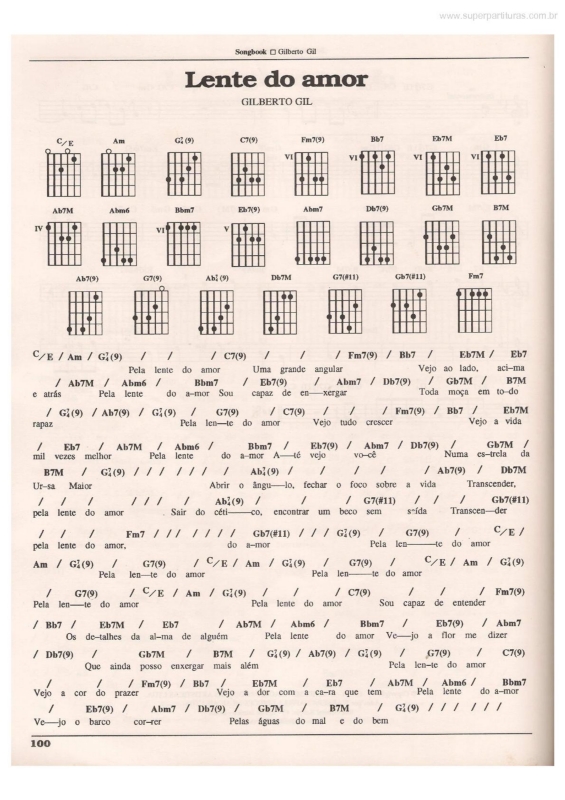 www.superpartituras.com.br
Songbook □ Gilberto Gil
Lente do amor
GILBERTO GIL
C/E Am G7/4(9) C7(9) Fm7(9) Bb7 Eb7M Eb7
VI VI VI VI
Ab7M Abm6 Bbm7 Eb7(9) Abm7 Db7(9) Gb7M B7M
IV VI V
Ab7(9) G7(9) Ab7/4(9) Db7M G7(#11) Gb7(#11) Fm7
C/E / Am / G7/4(9) / / / C7(9) / / / Fm7(9) / Bb7 / Eb7M / Eb7
Pela lente do amor Uma grande angular Vejo ao lado, aci—ma
/ Ab7M / Abm6 / Bbm7 / Eb7(9) / Abm7 / Db7(9) / Gb7M / B7M
e atrás Pela lente do a—mor Sou capaz de en—xergar Toda moça em to—do
/ G7/4(9) / Ab7(9) / G7/4(9) / G7(9) / C7(9) / / / Fm7(9) / Bb7 / Eb7M
rapaz Pela len—te do amor Vejo tudo crescer Vejo a vida
/ Eb7 / Ab7M / Abm6 / Bbm7 / Eb7(9) / Abm7 / Db7(9) / Gb7M /
mil vezes melhor Pela lente do a—mor A—té vejo vo—cê Numa es—trela da
B7M / G7/4(9) / / / / / / / Ab7/4(9) / / / / / / / Ab7(9) / Db7M
Ur—sa Maior Abrir o ângu—lo, fechar o foco sobre a vida Transcender,
/ / / / / / / Ab7/4(9) / / / G7(#11) / / / Gb7(#11)
pela lente do amor Sair do céti—co, encontrar um beco sem saída Transcen—der
/ / / Fm7 / / / / / / / Gb7(#11) / / / G7/4(9) / G7(9) / C/E /
pela lente do amor, do a—mor Pela len—te do amor
Am / G7/4(9) / G7(9) / C/E / Am / G7/4(9) / G7(9) / C/E / Am / G7/4(9)
Pela len—te do amor Pela len—te do amor
/ G7(9) / C/E / Am / G7/4(9) / / / C7(9) / / / Fm7(9)
Pela len—te do amor Pela lente do amor Sou capaz de entender
/ Bb7 / Eb7M / Eb7 / Ab7M / Abm6 / Bbm7 / Eb7(9) / Abm7
Os de—talhes da al—ma de alguém Pela lente do amor Ve—jo a flor me dizer
/ Db7(9) / Gb7M / B7M / G7/4(9) / Ab7(9) / G7/4(9) / G7(9) / C7(9)
Que ainda posso enxergar mais além Pela len—te do amor
/ / / Fm7(9) / Bb7 / Eb7M / Eb7 / Ab7M / Abm6 / Bbm7
Vejo a cor do prazer Vejo a dor com a ca—ra que tem Pela lente do a—mor
/ Eb7(9) / Abm7 / Db7(9) / Gb7M / B7M / G7/4(9) / / / / / /
Ve—jo o barco cor—rer Pelas águas do mal e do bem
100